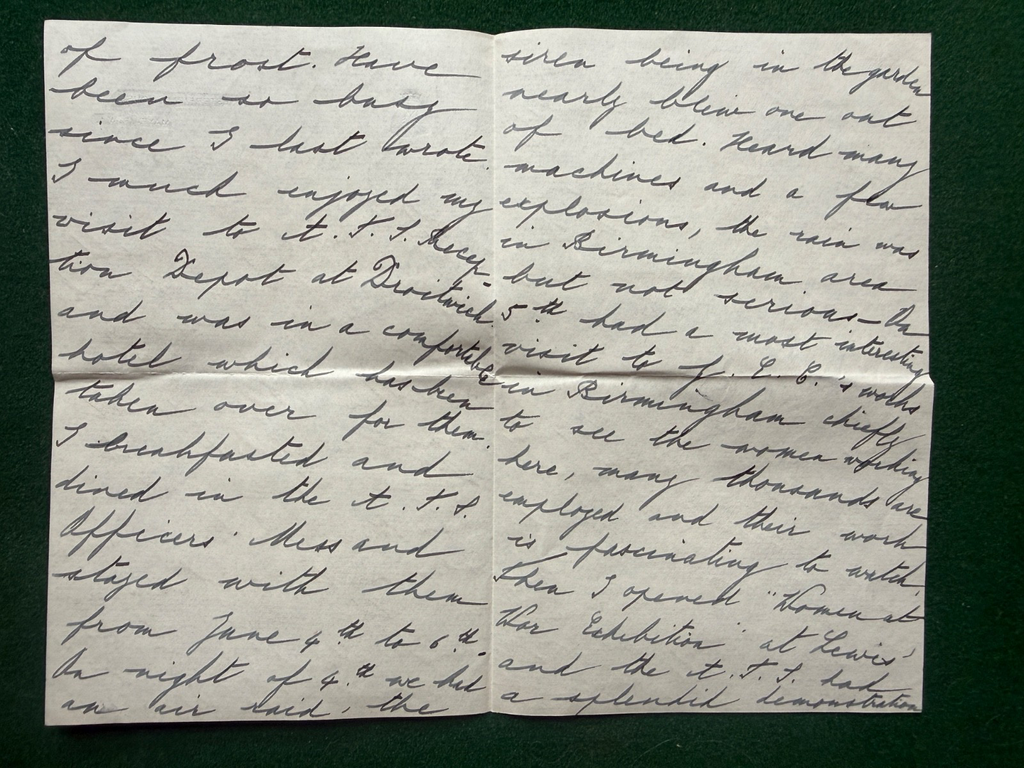 of frost. Have
been so busy
since I last wrote.
I much enjoyed my
visit to A.T.S. Recep-
tion Depot at Droitwich
and was in a comfortable
hotel which has been
taken over for them.
I breakfasted and
dined in the A.T.S.
Officers' Mess and
stayed with them
from June 4th to 6th.
On night of 4th we had
an air raid, the
siren being in the garden
nearly blew one out
of bed. Heard many
machines and a few
explosions, the rain was
in Birmingham area
but not serious - On
5th had a most interesting
visit to G.E.C.'s works
in Birmingham chiefly
to see the women working
here, many thousands are
employed and their work
is fascinating to watch
Then I opened "Women at
War Exhibition" at Lewis'
and the A.T.S. had
a splendid demonstration